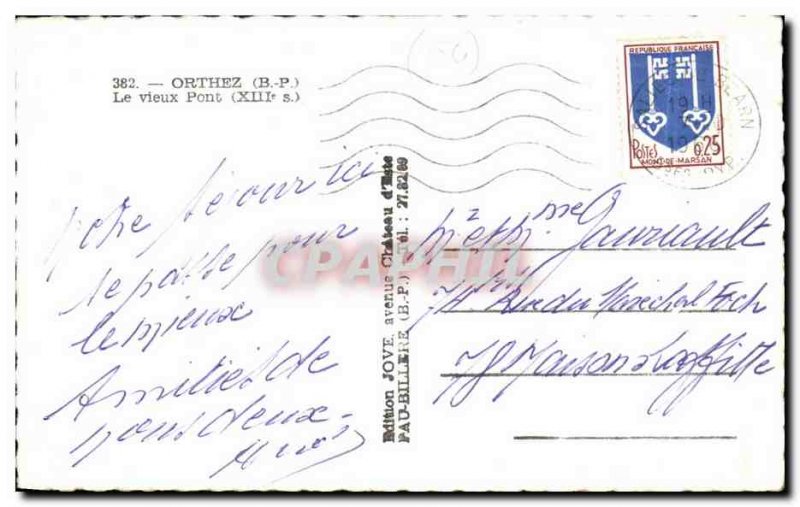 382. — ORTHEZ (B.-P.)
Le vieux Pont (XIIIe s.)
Notre séjour ici
se passe pour
le mieux
Amitiés de
nous deux.
Edition JOVE, avenue Château d'Este
PAU-BILLERE (B.-P.) Tél. : 27.82.69
REPUBLIQUE FRANÇAISE
POSTES
0,25
MONT-DE-MARSAN
19 H
BEARN
Mr et Mme Gauriault
Rue du Maréchal Foch
78 Maisons Laffitte
CPAPHIL